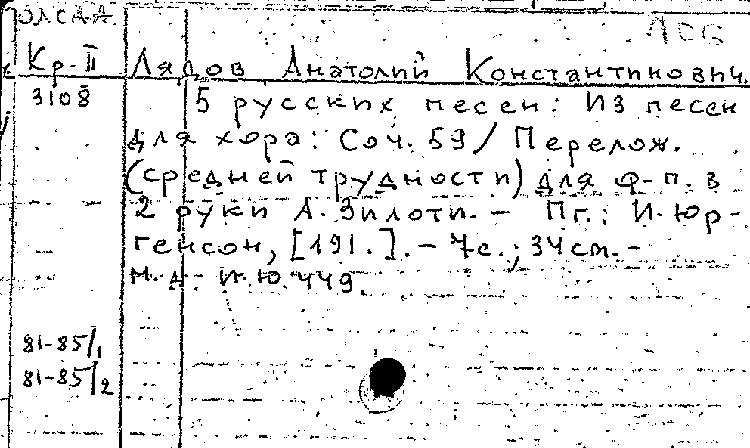 ЭЛСАА
Кр-II Лядов Анатолий Константинович.
3108 5 русских песен: Из песен
для хора: Соч. 59 / Перелож.
(средней трудности) для ф-п. в
2 руки А. Зилоти. - Пг.: И. Юр-
генсон, [191.]. - 7с.; 34см. -
Н.д. И.Ю. 449.
81-85/1
81-85/2